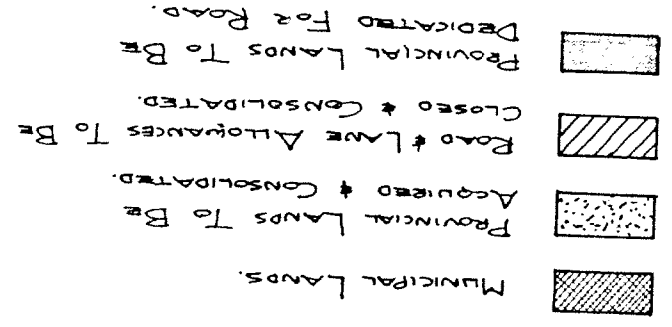 MUNICIPAL LANDS.
PROVINCIAL LANDS TO BE
ACQUIRED & CONSOLIDATED.
ROAD & LANE ALLOWANCES TO BE
CLOSED & CONSOLIDATED.
PROVINCIAL LANDS TO BE
DEDICATED FOR ROAD.